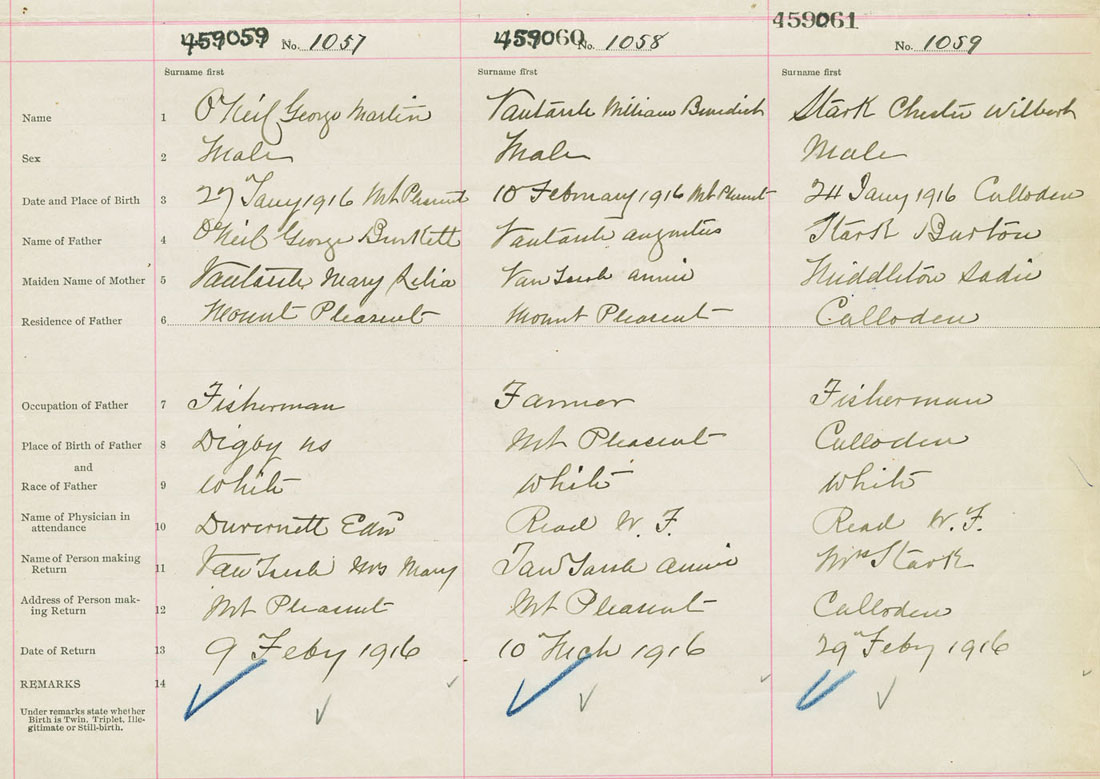 459059 No. 1057 459060 No. 1058 459061 No. 1059
Surname first Surname first Surname first
Name 1 O'Neil George Martin Vantassle William Benedict Stark Chester Wilbert
Sex 2 Male Male Male
Date and Place of Birth 3 27 Jany 1916 Mt Pleasent 10 February 1916 Mt Pleasent 24 Jany 1916 Culloden
Name of Father 4 O'Neil George Burkett Vantassle Augustus Stark Burton
Maiden Name of Mother 5 Vantassle Mary Van Annie Middleton Sadie
Residence of Father 6 Mount Pleasent Mount Pleasent Culloden
Occupation of Father 7 Fisherman Farmer Fisherman
Place of Birth of Father 8 Digby NS Mt Pleasent Culloden
and
Race of Father 9 White White White
Name of Physician in
attendance 10 Edw Read W. F. Read W. F.
Name of Person making
Return 11 Van Mrs Mary Van Annie Mrs Stark
Address of Person mak-
ing Return 12 Mt Pleasent Mt Pleasent Culloden
Date of Return 13 9 Feby 1916 10 Mch 1916 29 Feby 1916
REMARKS 14
Under remarks state whether
Birth is Twin, Triplet, Ille-
gitimate or Still-birth.